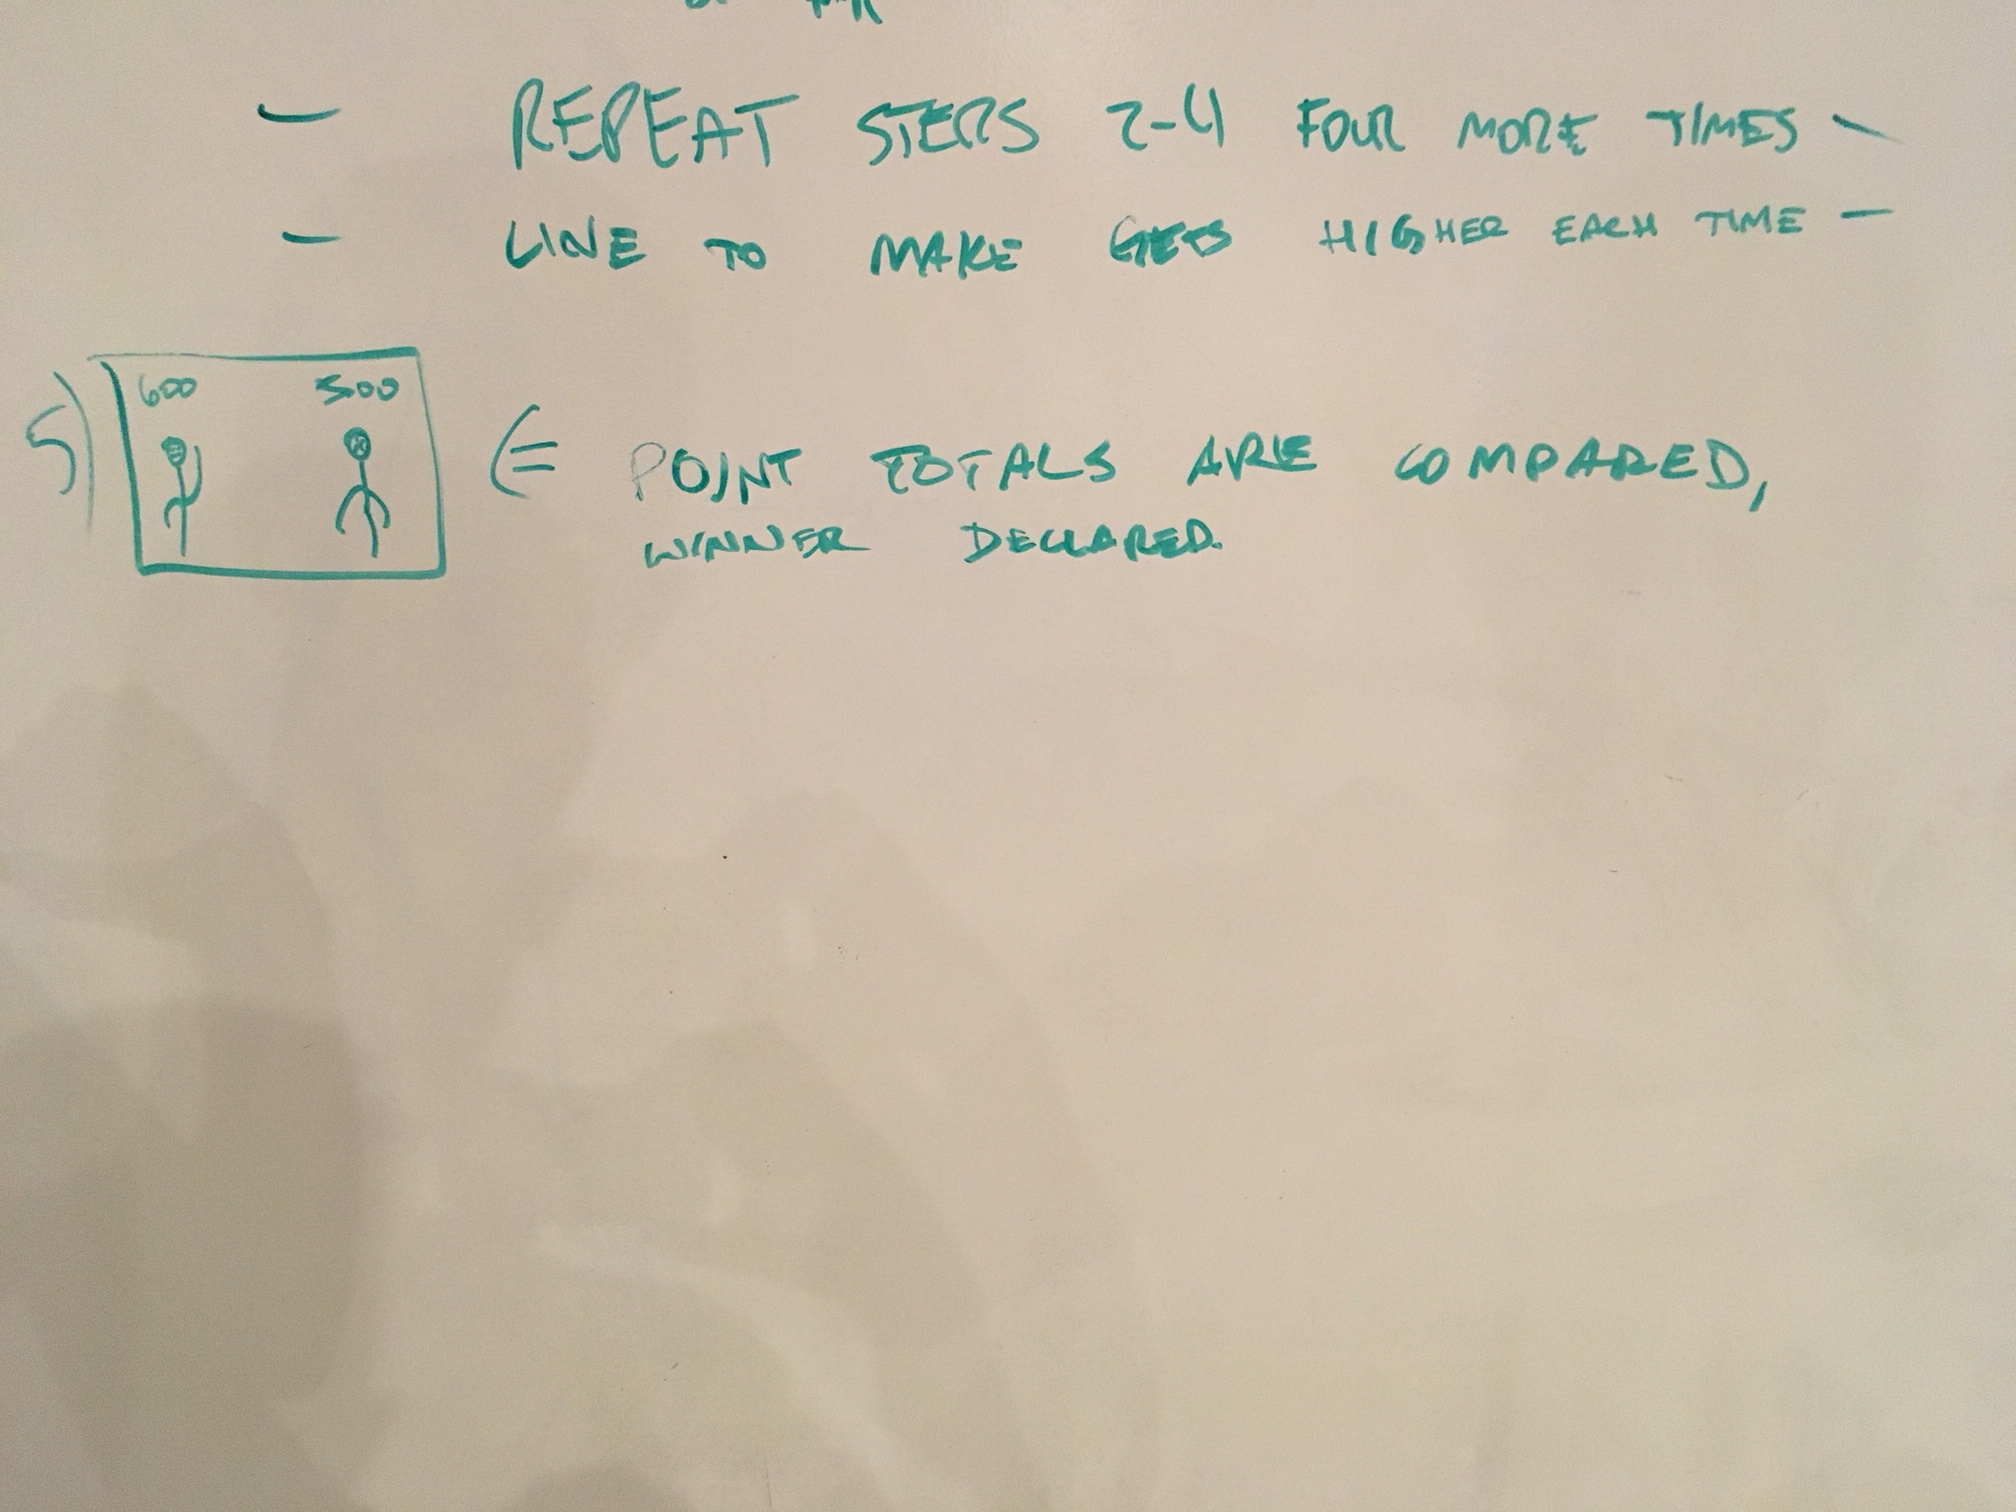 - REPEAT STEPS 2-4 FOUR MORE TIMES -
- LINE TO MAKE GETS HIGHER EACH TIME -
5)
600 500
← POINT TOTALS ARE COMPARED,
WINNER DECLARED.